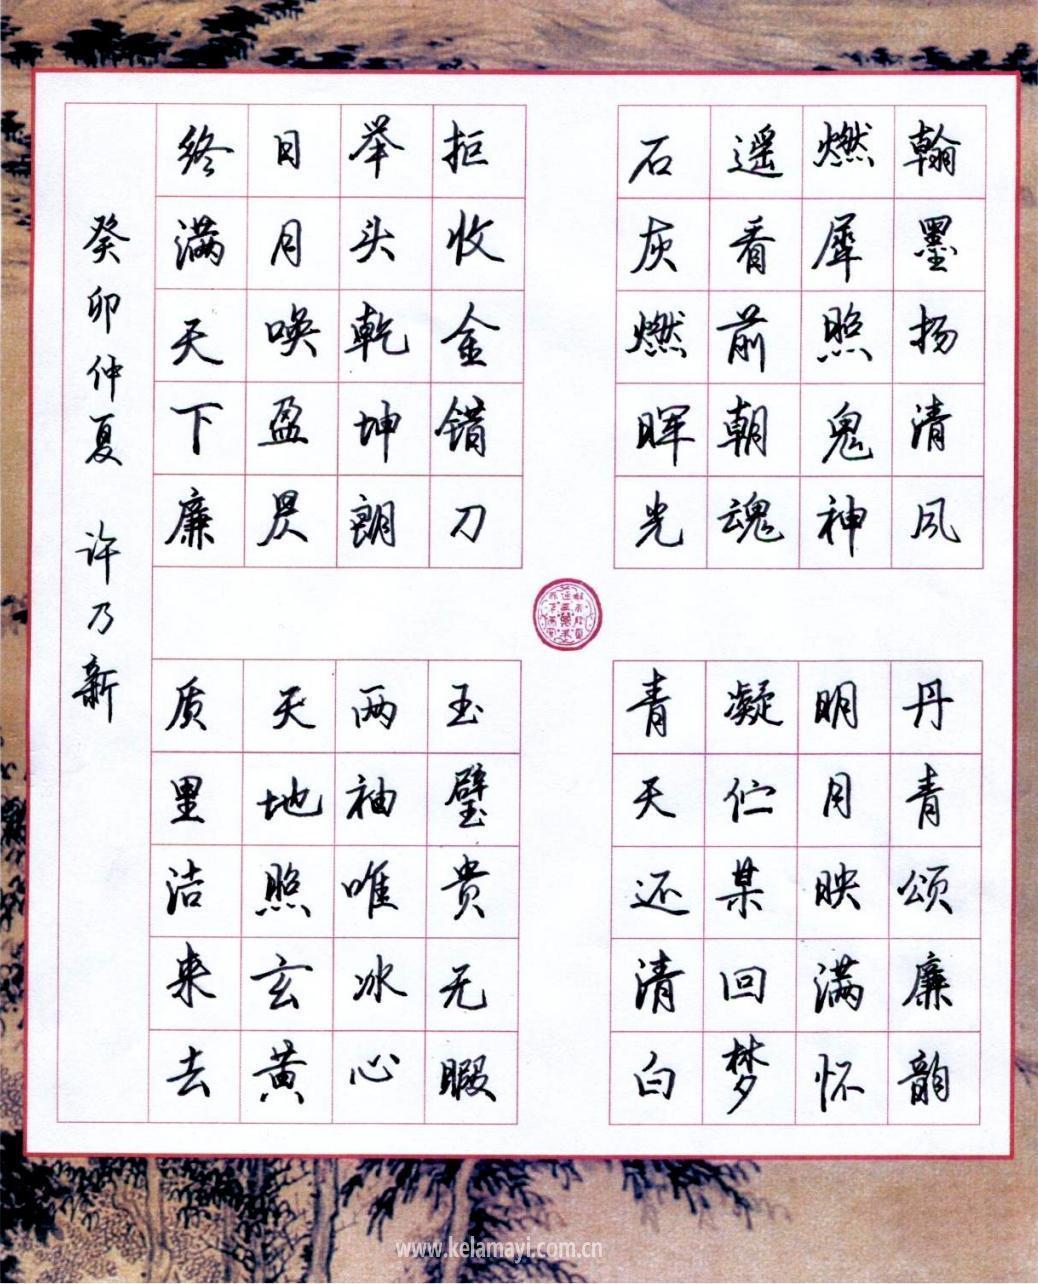 翰墨扬清风
丹青颂廉韵
燃犀照鬼神
明月映满怀
遥看前朝魂
凝伫某回梦
石灰燃晖光
青天还清白
拒收金错刀
玉璧贵无暇
举头乾坤朗
两袖唯冰心
日月唤盈昃
天地照玄黄
终满天下廉
质里洁来去
癸卯仲夏 许乃新
www.kelamayi.com.cn